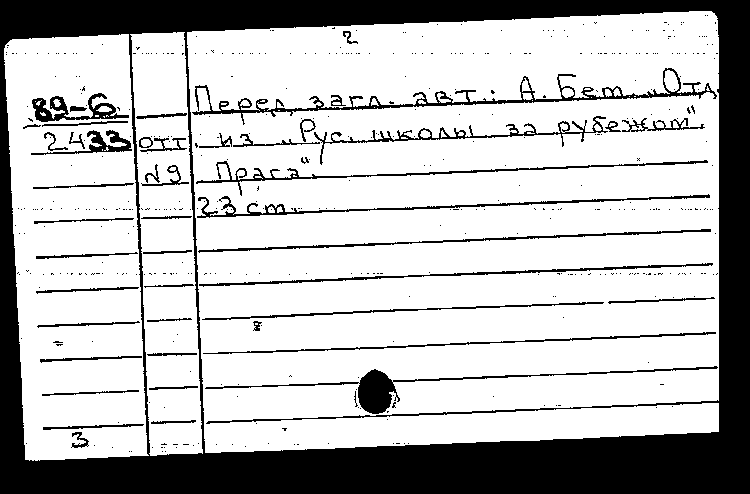 2
89-6 Перед загл. авт.: А. Бем. „Отд.
2433 отт. из „Рус. школы за рубежом".
№9 Прага".
23 ст.
3